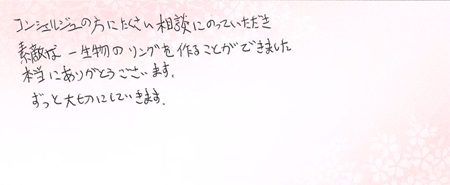 コンシェルジュの方にたくさん相談にのっていただき
素敵な一生物のリングを作ることができました
本当にありがとうございます。
ずっと大切にしていきます。